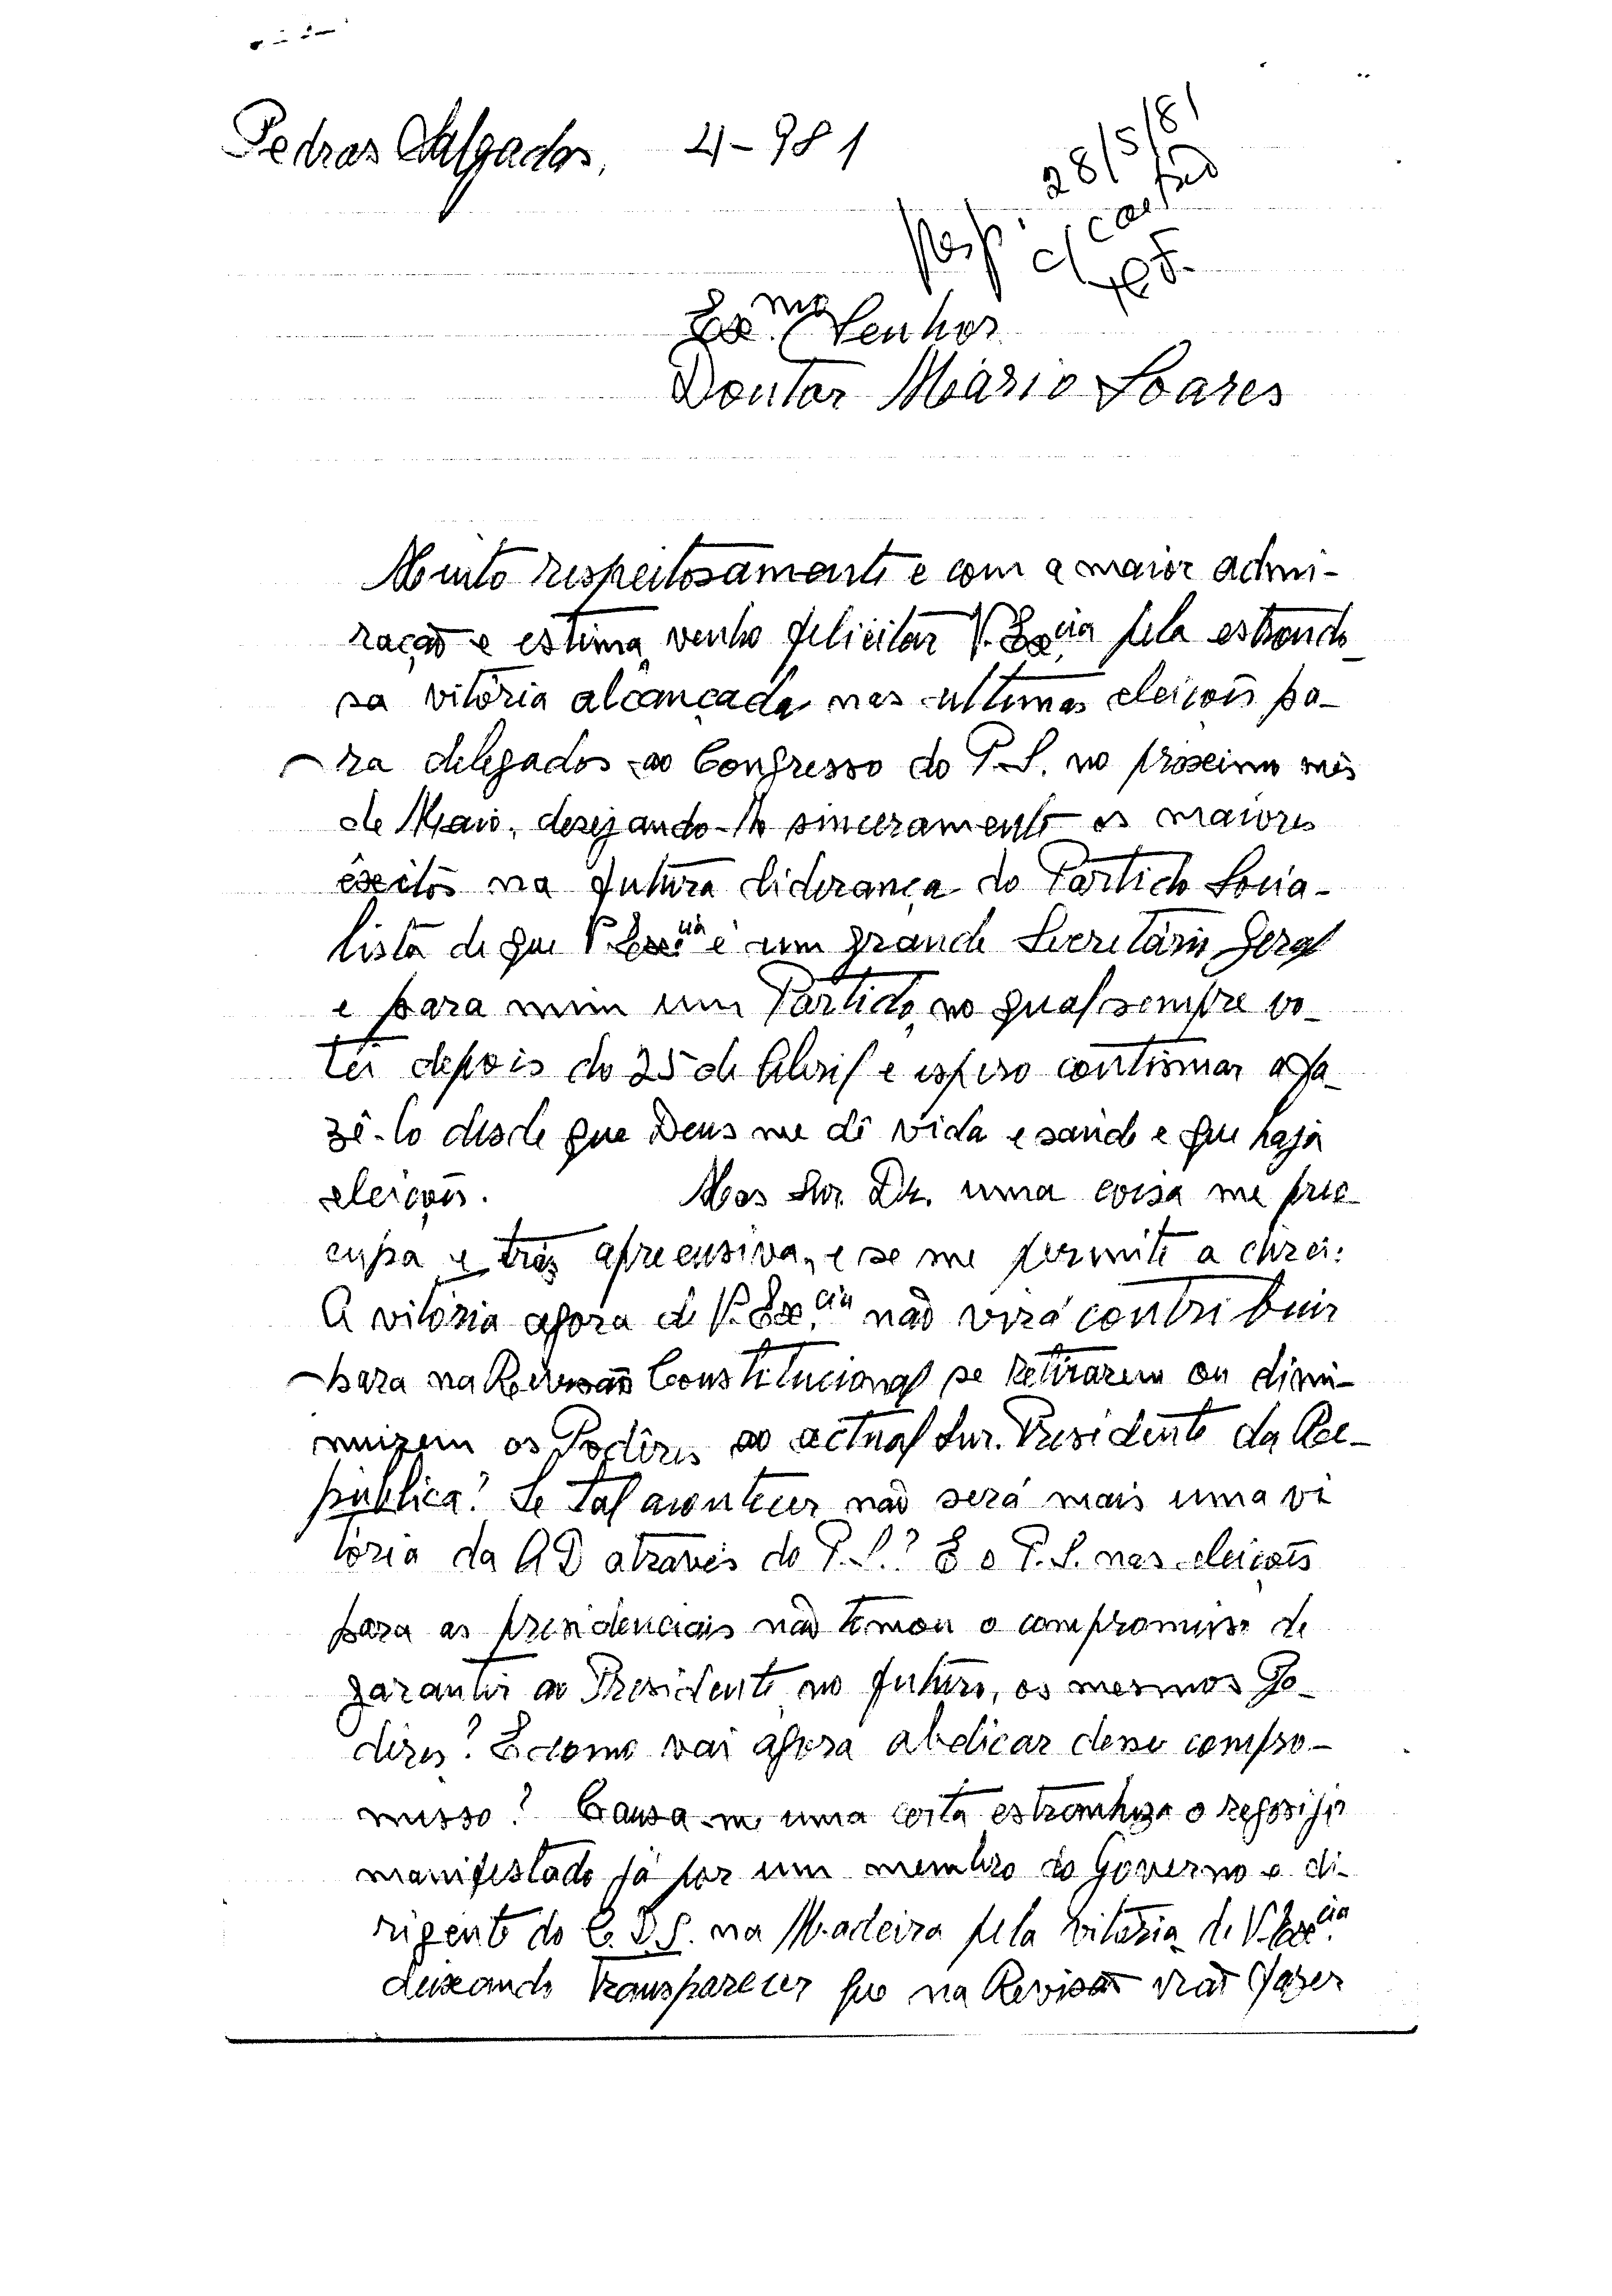 Pedras Salgadas, 4-981
28/5/81
Resp. c/ cartão
Ex.mo Senhor
Doutor Mário Soares
Muito respeitosamente e com a maior admi-
ração e estima, venho felicitar V. Ex.cia pela estrondo
sa vitória alcançada nas ultimas eleições pa-
ra delegados ao Congresso do P.S. no próximo mês
de Maio, desejando-lhe sinceramente os maiores
êxitos na futura liderança do Partido Socia-
lista de que V. Ex.cia é um grande Secretário Geral
e para mim um Partido, no qual sempre vo-
tei depois do 25 de Abril e espero continuar a fa-
zê-lo desde que Deus me dê vida e saúde e que haja
eleições. Mas Snr. Dr. uma coisa me preo-
cupa e tráz apreensiva, e se me permite a direi:
A vitória agora de V. Ex.cia não virá contribuir
para na Revisão Constitucional se retirarem ou dimi-
nuirem os Podêres ao actual Snr. Presidente da Re-
pública? Se tal acontecer não será mais uma vi
tória da AD através do P.S.? E o P.S. nas eleições
para as presidenciais não tomou o compromisso de
garantir ao Presidente, no futuro, os mesmos Po-
deres? E como vai agora abdicar desse compro-
misso? Causa-me uma certa estranheza o regosijo
manifestado já por um membro do Governo e di-
rigente do C.D.S. na Madeira pela vitória de V. Ex.cia
deixando transparecer que na Revisão irão fazer